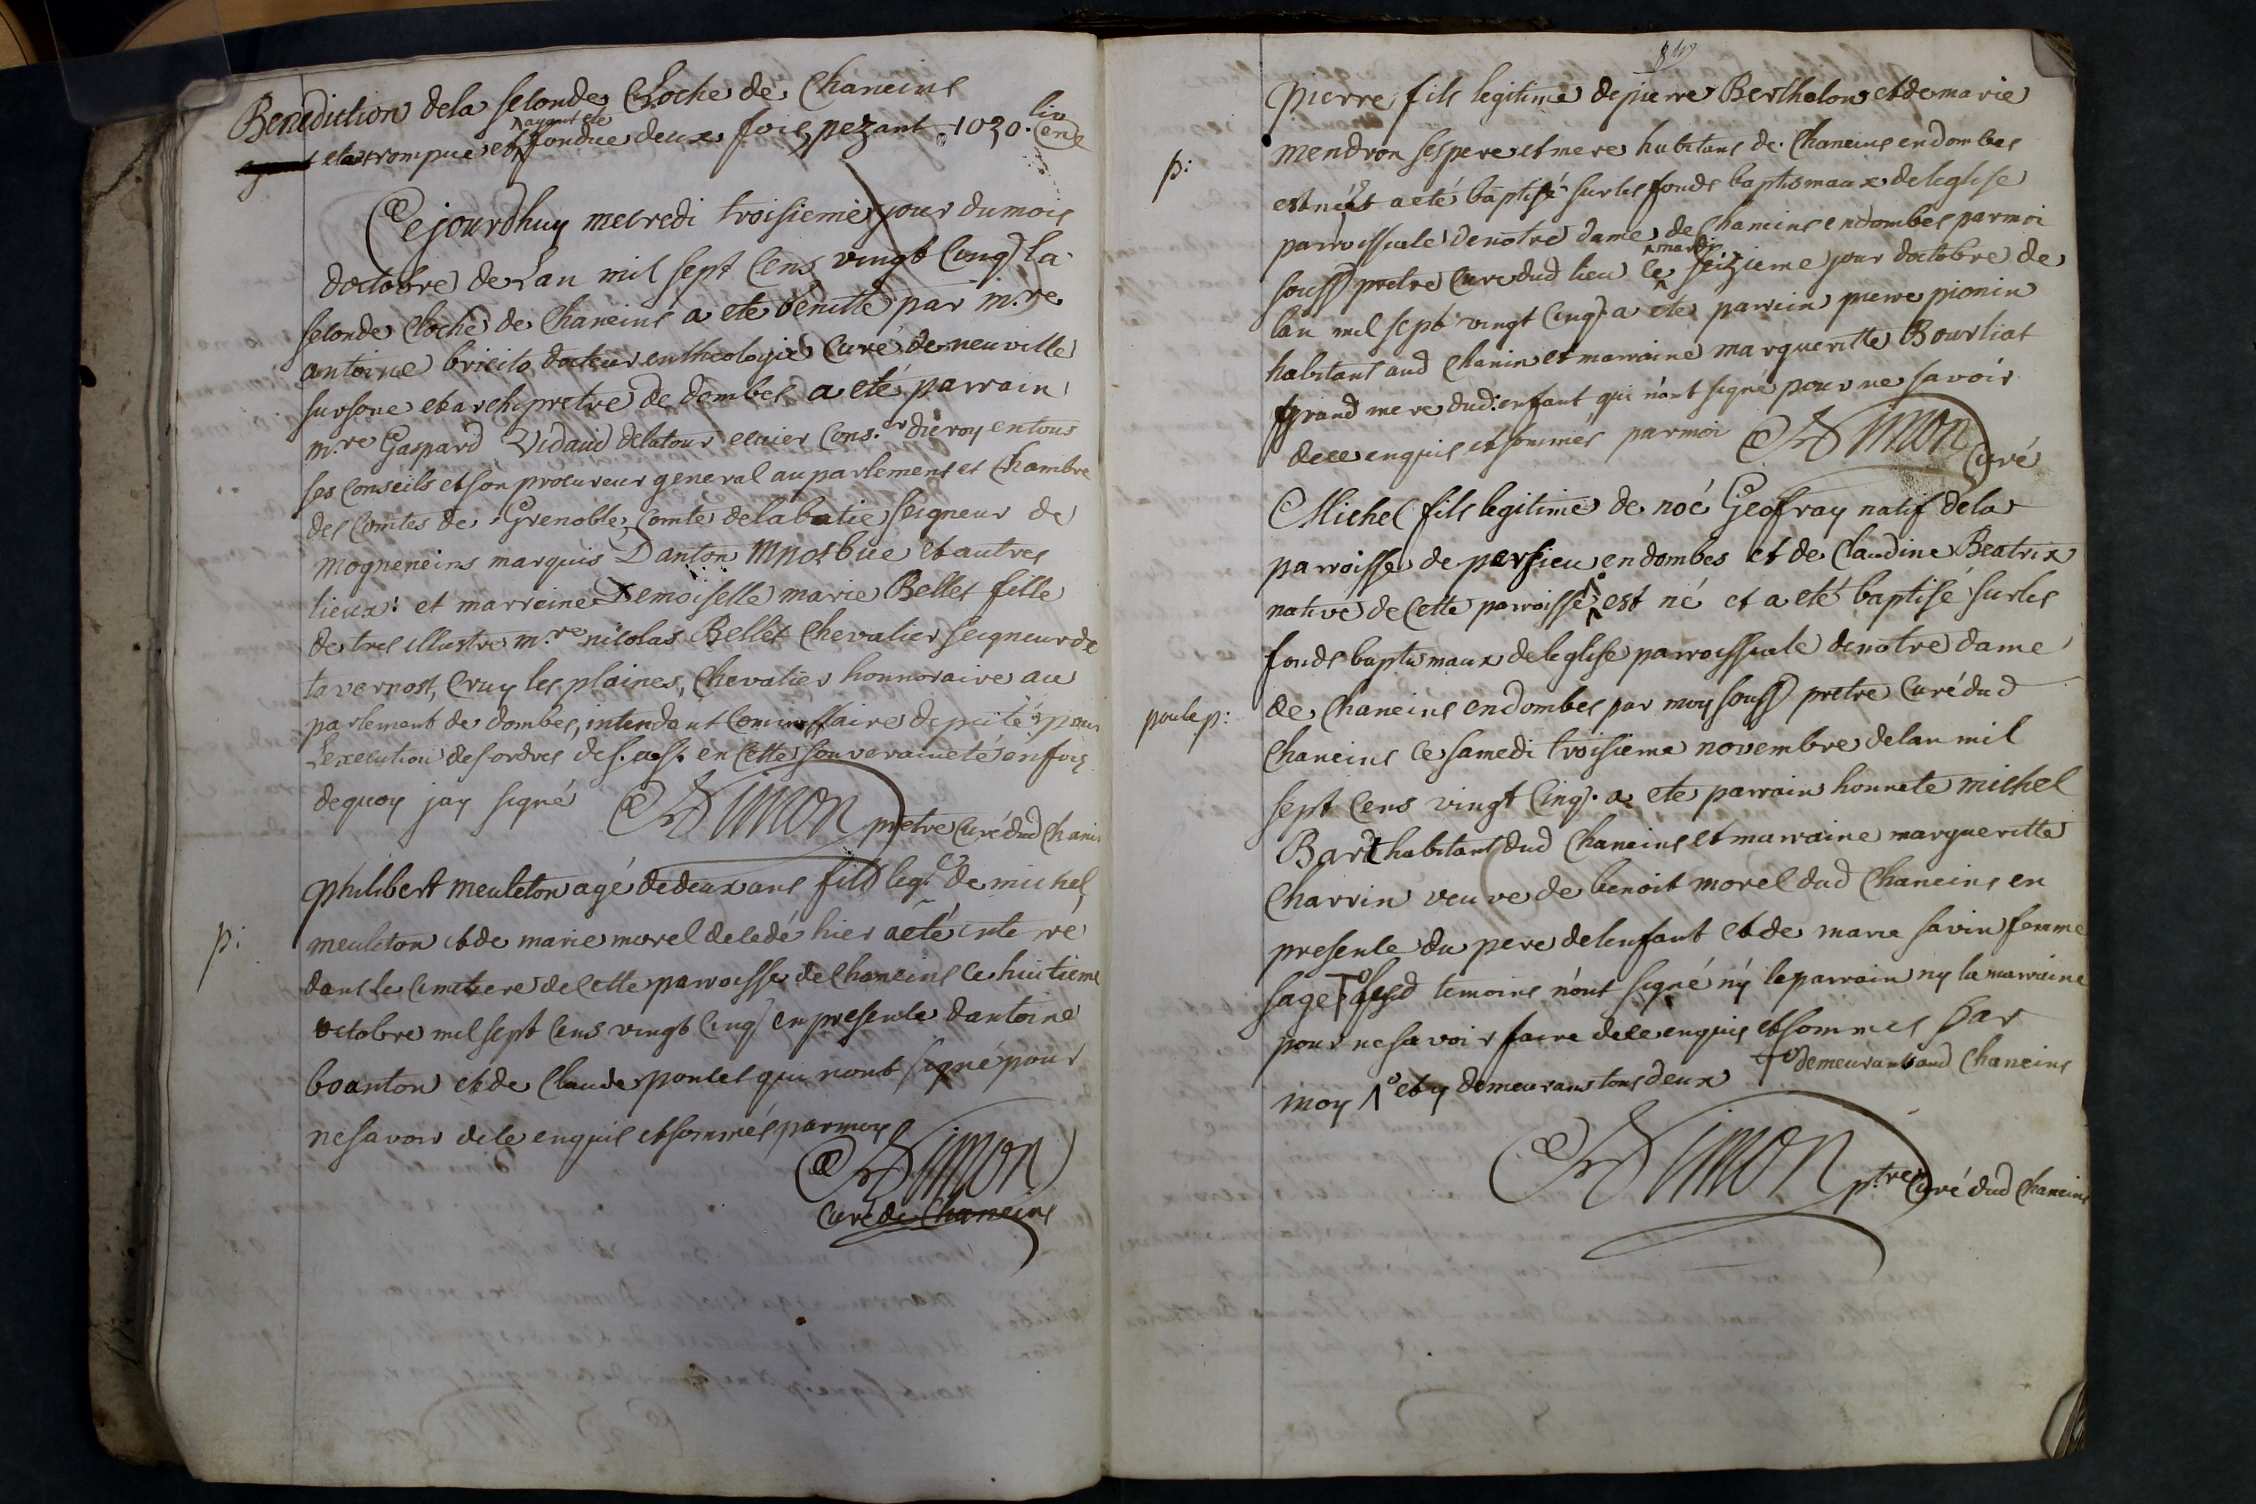 Benediction dela seconde Cloche de Chaneins
ayant eté
eté rompue et fondue deux fois, pezant 1030. liv
Cejourdhuy mecredi troisieme jour dumois
doctobre de Lan mil sept Cens vingt Cinq la
seconde Cloche de Chaneins a ete benitte par m.re
antoine docteur entheologie Curé deneuville
sursone et archipretre de dombes a eté parrain
m.re Gaspard Vidaud delatour ecuier Cons.er duroy entous
ses Conseils et son procureur general au parlement et Chambre
des Comtes de Grenoble, Comte delabatie seigneur de
mogneneins marquis Danton et autres
lieux: et marreine Demoiselle marie Bellet fille
de tres illustre m.re nicolas Bellet Chevalier seigneur de
tavernost, Cruy les plaines, Chevalier honnoraire au
parlement de dombes, intendant Commissaire deputé pour
Lexecution desordres des. a. s. en Cette souveraineté enfoy
dequoy jay signé Simon pretre Curé dud Chanins
p:
philibert meuleton agé dedeux ans fils leg.e de michel
meuleton et de marie morel decedé hier a eté enterré
dans le Cimetiere de Cette parroisse de Chaneins ce huitieme
octobre mil sept Cens vingt Cinq en presence dantoine
boanton et de Claude poncet qui nont signé pour
ne savoir dece enquis et sommés parmoy
Simon
Curé de Chaneins
pierre fils legitime de pierre Berthelon et de marie
p:
mendron ses pere et mere habitans de Chaneins en dombes
est né et a eté baptisé sur les fonds baptismaux de leglise
parroissiale de notre dame de Chaneins en dombes par moi
mardi
souss pretre Curé dud lieu ce seizieme jour doctobre de
lan mil sept vingt Cinq. a ete parrein pierre pionin
habitant aud Chanin et marraine margueritte Bourliat
grand mere dud: enfant qui nont signé pour ne savoir
dece enquis et sommés par moi Simon Curé
Michel fils legitime de noé Geofray natif de la
parroisse de persieu en dombes et de Claudine Beatrix
native de Cette parroisse est né et a eté baptisé sur les
fonds baptismaux de leglise parroissiale de notre dame
poule p:
de Chaneins en dombes par moy souss pretre Curé dud
Chaneins ce samedi troisieme novembre de lan mil
sept Cens vingt Cinq. a ete parrain honnete michel
Bart habitant dud Chaneins et marraine margueritte
Charrin veuve de benoit morel dud Chaneins en
presence du pere de lenfant et de marie savin femme
sage lesd temoins n'ont signé n'y le parrain ny la marraine
pour ne savoir faire dece enquis et sommes par
moy et y demeurans tous deux demeurant aud Chaneins
Simon p.tre Curé dud Chaneins